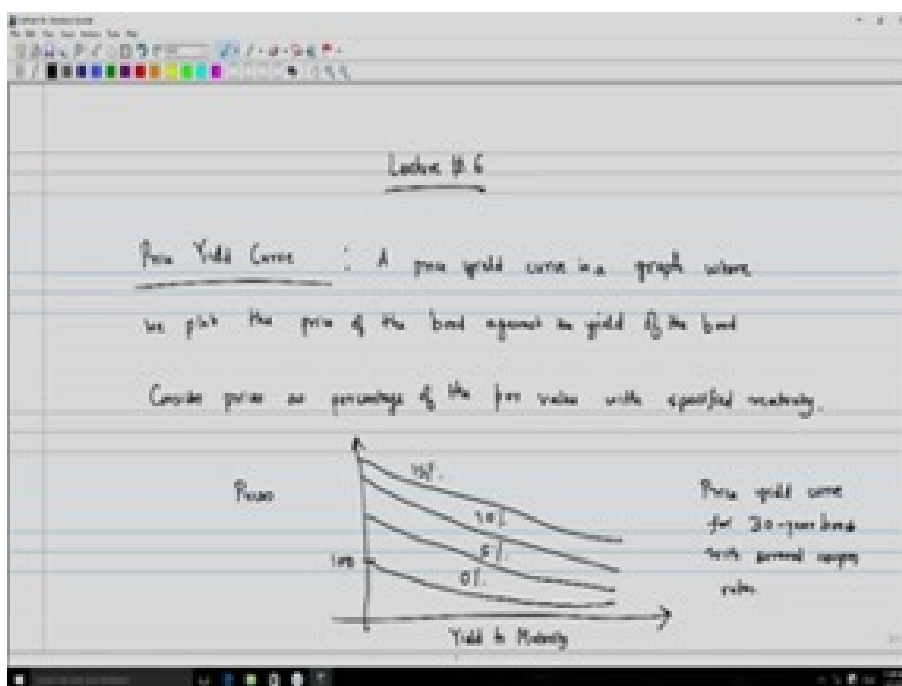 Lecture # 6
Price Yield Curve : A price yield curve is a graph where
we plot the price of the bond against the yield of the bond
Consider prices as percentage of the par value with specified maturity.
Prices
15%.
10%
5%.
100
0%.
Yield to Maturity
Price yield curve
for 30-year bond
with several coupon
rates